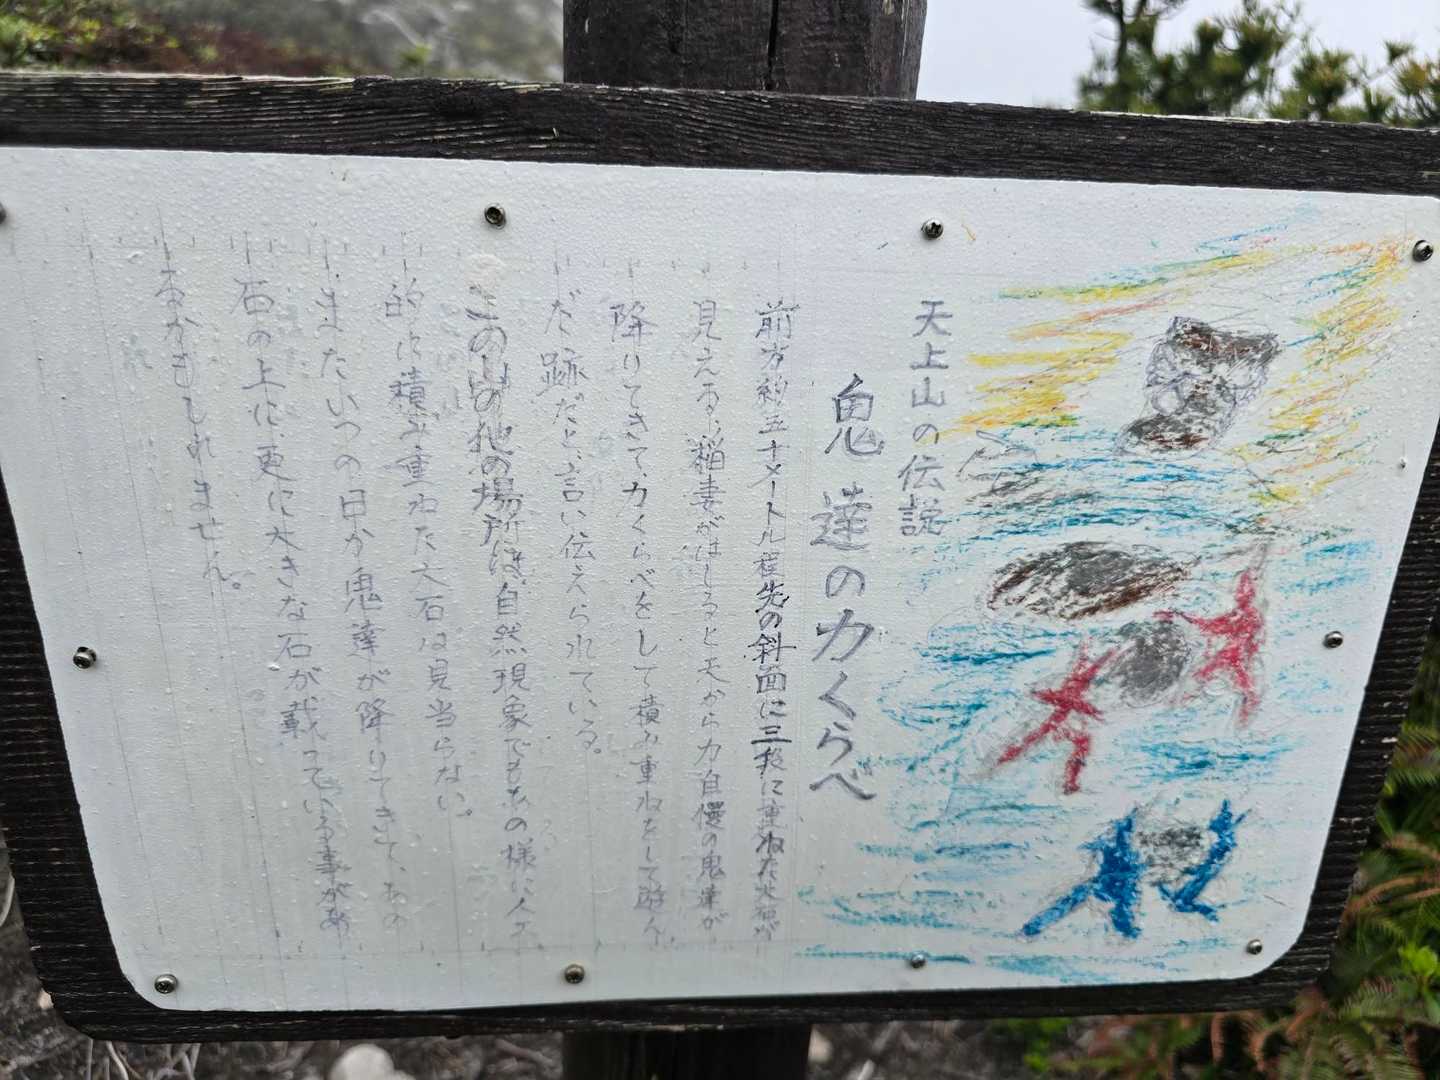 天上山の伝説
鬼達の力くらべ
前方約五十メートル程先の斜面に三段に重ねた大石が
見える。稲妻がはしると天から力自慢の鬼達が
降りてきて、力くらべをして積み重ねをして遊ん
だ跡だと、言い伝えられている。
この山の他の場所は、自然現象でもあの様に人工
的に積み重ねた大石は見当らない。
またいつの日か鬼達が降りてきて、あの
石の上に更に大きな石が載っている事があ
るかもしれません。